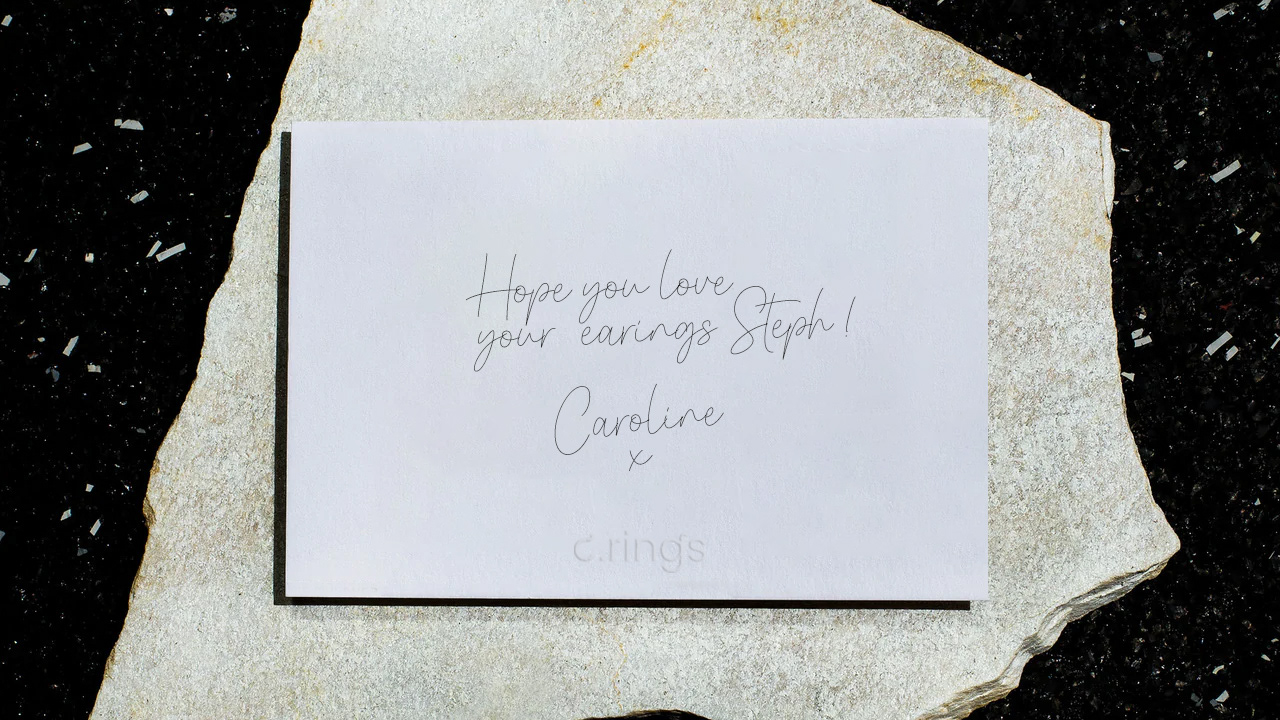 Hope you love
your earings Steph!
Caroline
x
c.rings